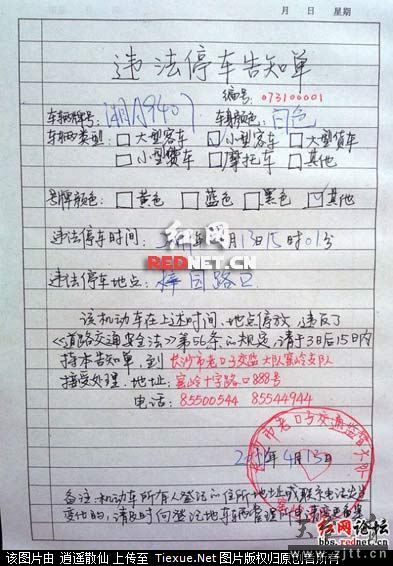 月 日 星期
违法停车告知单
编号: 073100001
车辆牌号: 湘A9407 车身颜色: 白色
车辆类型: □大型客车 □小型客车 □大型货车
□小型货车 □摩托车 □其他
号牌颜色: □黄色 □蓝色 □黑色 ☑其他
违法停车时间: 年 月13日15时01分
红网
REDNET.CN
违法停车地点: 梓园路口
该机动车在上述时间、地点停放,违反了
《道路交通安全法》第56条的规定,请于3日后15日内
持本告知单,到长沙市老口子交监大队窝岭支队
接受处理。地址: 窝岭十字路口888号
电话: 85500544 85544944
市老口子交通监督大队
2011年4月13日
备注:机动车所有人登记的住所地址或联系电话发生
变化的,请及时向登记地车辆管理所申请变更备案
红网论坛
bbs.rednet.cn
www.zjtt.cn
该图片由 逍遥散仙 上传至 Tiexue.Net 图片版权归原创者所有